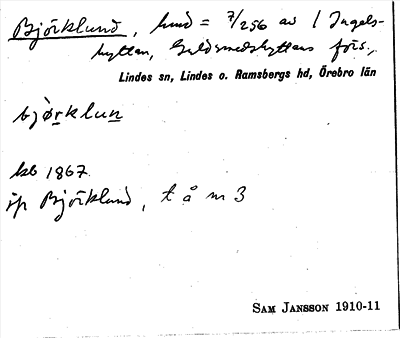 Björklund, hmd = 7/256 av 1 Ingels-
hyttan, Guldsmedshyttans förs.,
Lindes sn, Lindes o. Ramsbergs hd, Örebro län
bjò̱rklun
kb 1867
ip Björklund, t å m 3
SAM JANSSON 1910-11